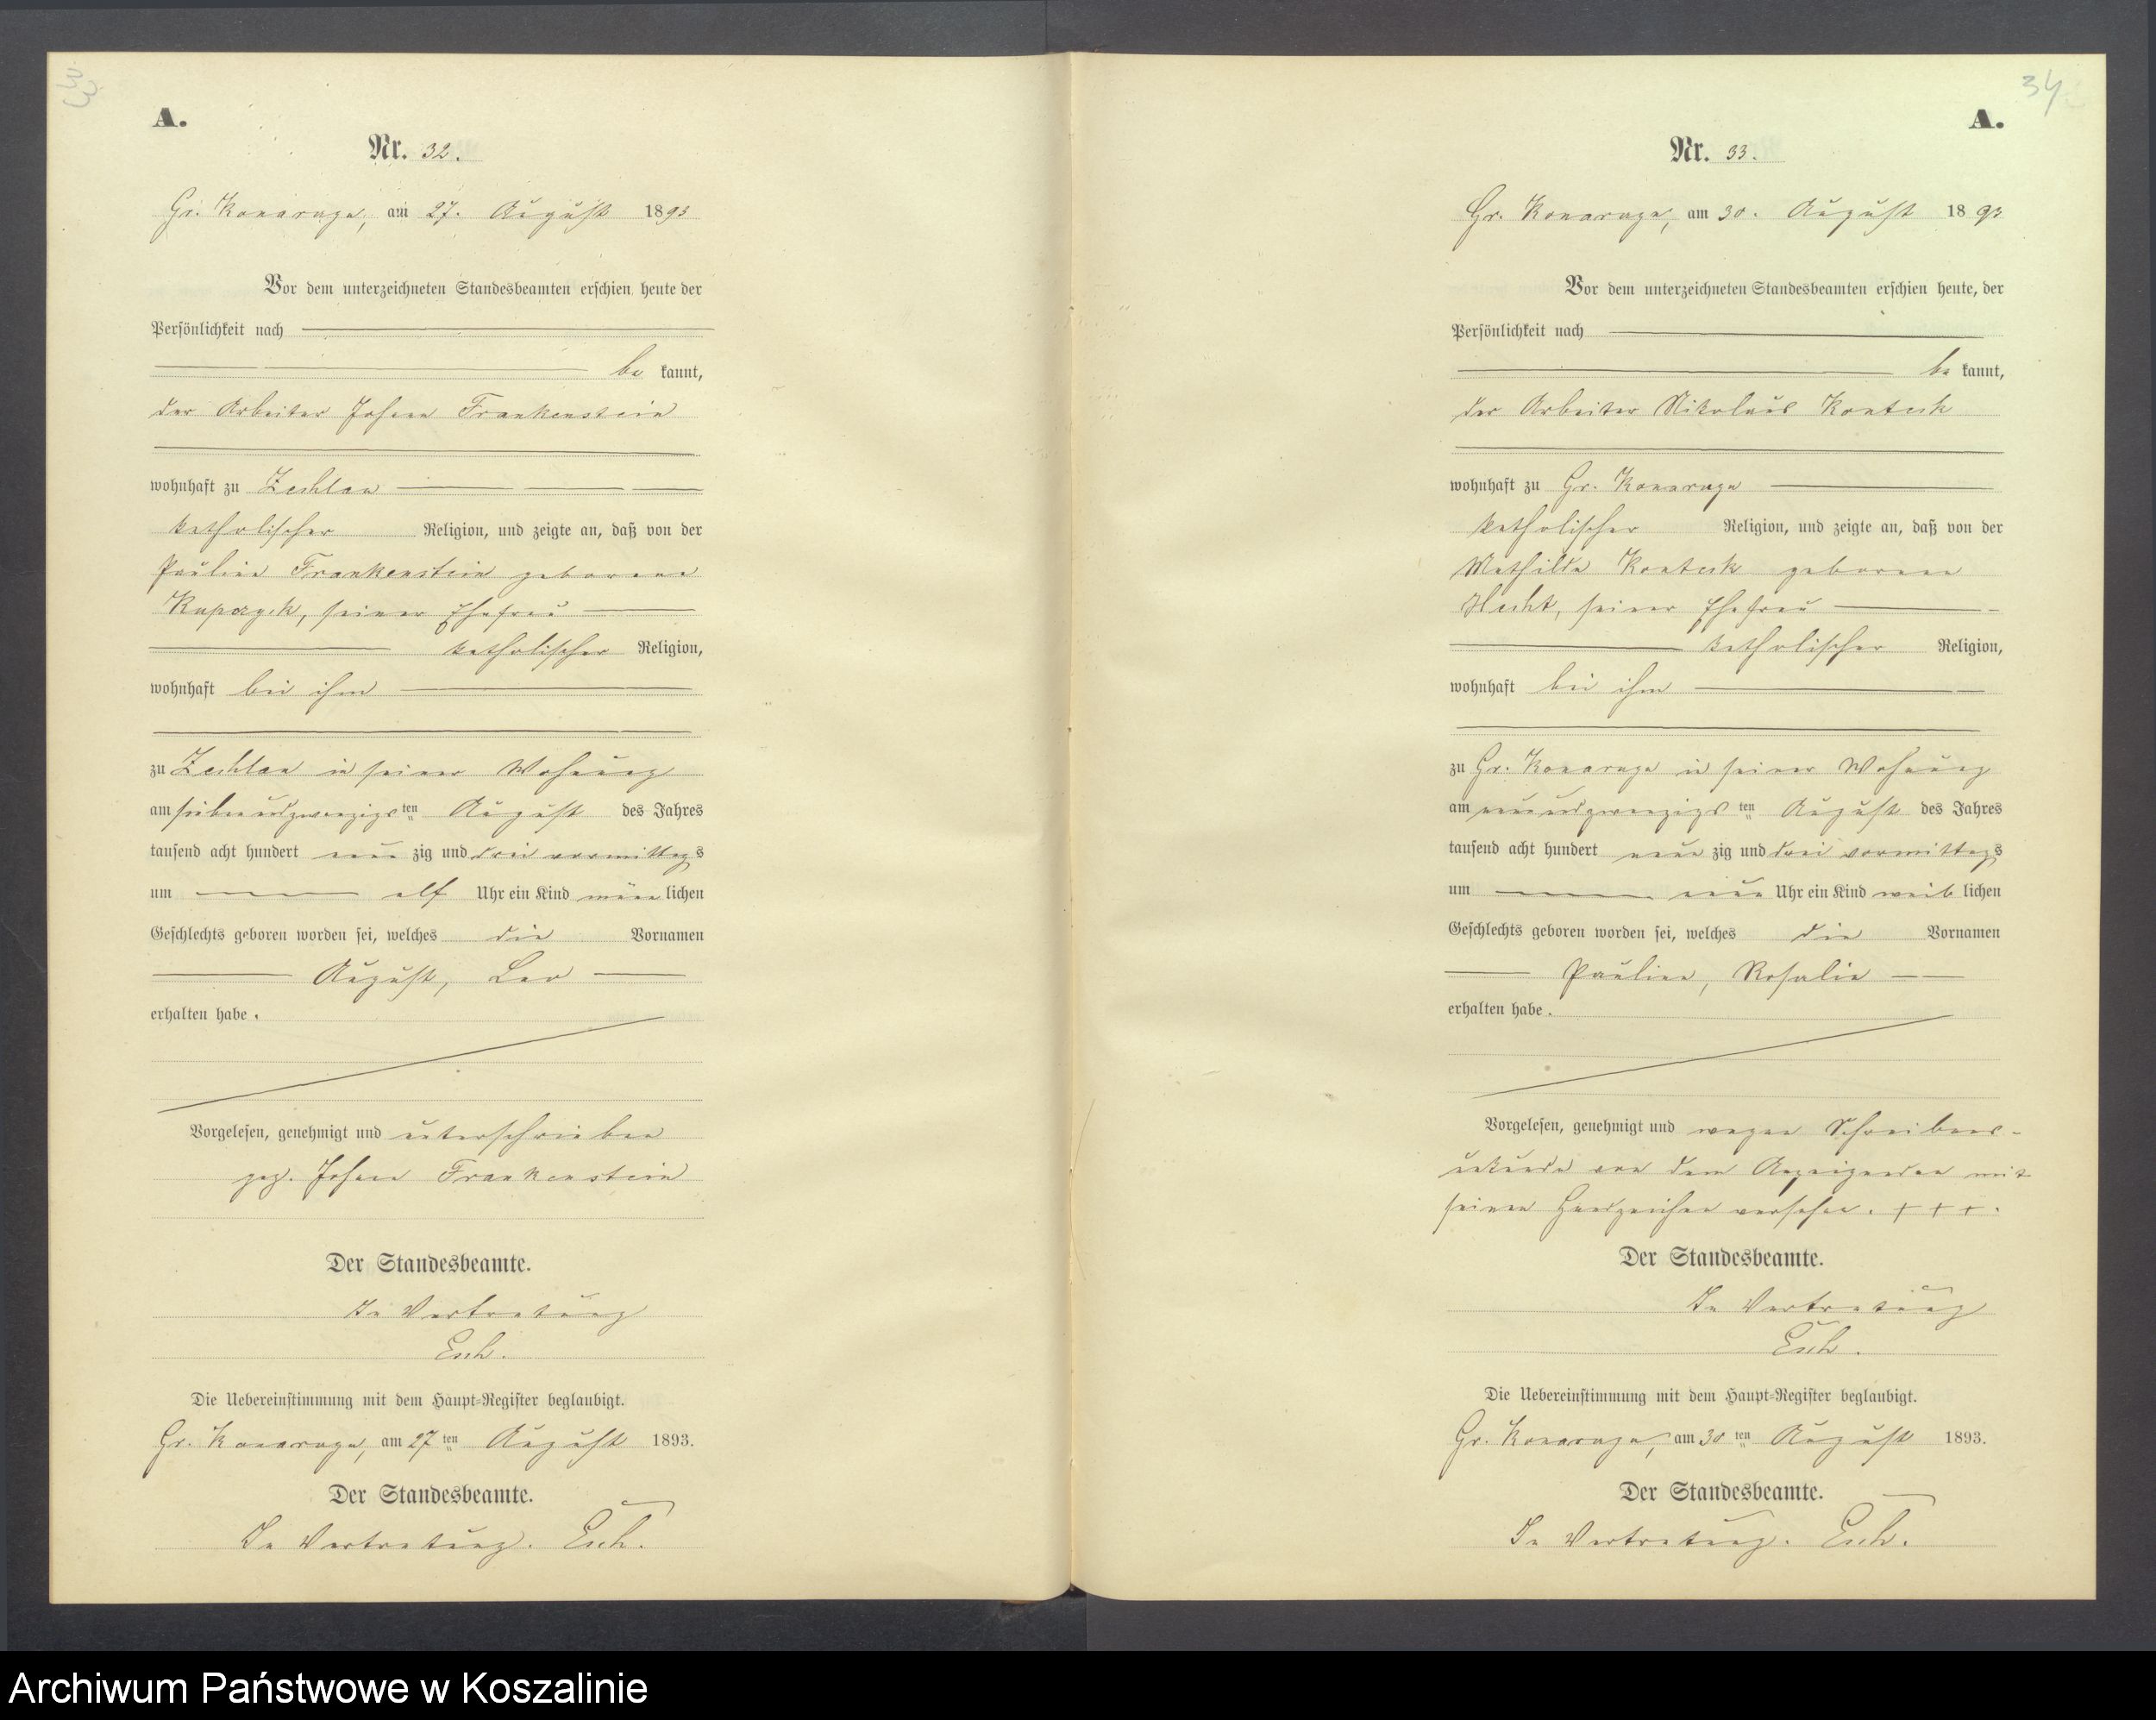 33
A.
Nr. 32.
Gr. Konarzyn, am 27. August 1893
Vor dem unterzeichneten Standesbeamten erschien heute der
Persönlichkeit nach
be kannt,
der Arbeiter Johann Frankenstein
wohnhaft zu Zechlau
katholischer Religion, und zeigte an, daß von der
Pauline Frankenstein geborene
seiner Ehefrau
katholischer Religion,
wohnhaft bei ihm
zu Zechlau in seiner Wohnung
am siebenundzwanzigsten August des Jahres
tausend acht hundert neun zig und drei vormittags
um elf Uhr ein Kind männ lichen
Geschlechts geboren worden sei, welches die Vornamen
August, Leo
erhalten habe.
Vorgelesen, genehmigt und unterschrieben
gez. Johann Frankenstein
Der Standesbeamte.
In Vertretung
Die Uebereinstimmung mit dem Haupt-Register beglaubigt.
Gr. Konarzyn, am 27ten August 1893.
Der Standesbeamte.
In Vertretung.
34
A.
Nr. 33.
Gr. Konarzyn, am 30. August 1893
Vor dem unterzeichneten Standesbeamten erschien heute, der
Persönlichkeit nach
be kannt,
der Arbeiter Nikolaus
wohnhaft zu Gr. Konarzyn
katholischer Religion, und zeigte an, daß von der
Mathilde geborene
Hecht, seiner Ehefrau
katholischer Religion,
wohnhaft bei ihm
zu Gr. Konarzyn in seiner Wohnung
am neunundzwanzigsten August des Jahres
tausend acht hundert neun zig und drei vormittags
um neun Uhr ein Kind weib lichen
Geschlechts geboren worden sei, welches die Vornamen
Pauline, Rosalie
erhalten habe.
Vorgelesen, genehmigt und wegen Schreibens-
unkunde von dem Anzeigenden mit
seinen Handzeichen versehen. + + +.
Der Standesbeamte.
In Vertretung
Die Uebereinstimmung mit dem Haupt-Register beglaubigt.
Gr. Konarzyn, am 30ten August 1893.
Der Standesbeamte.
In Vertretung.
Archiwum Państwowe w Koszalinie